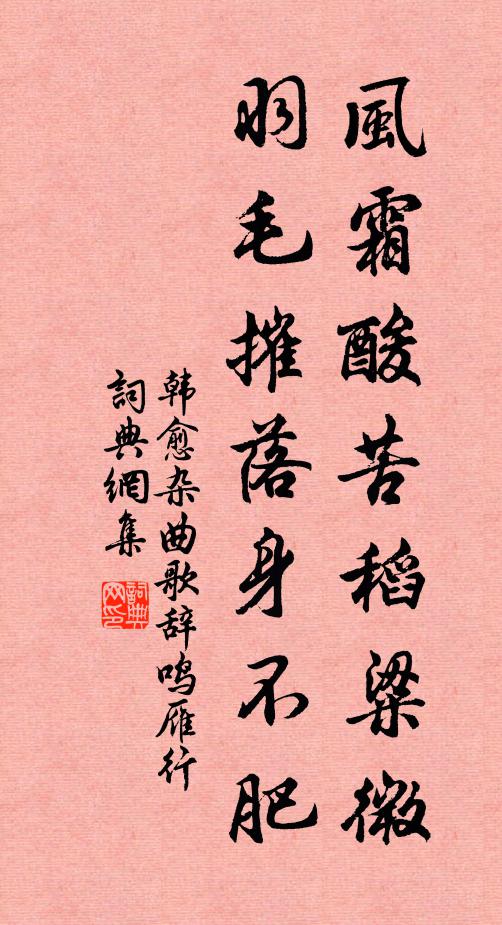 風霜酸苦稻粱微
羽毛摧落身不肥
韩愈杂曲歌辞鸣雁行
詞典網集
詞典
网印